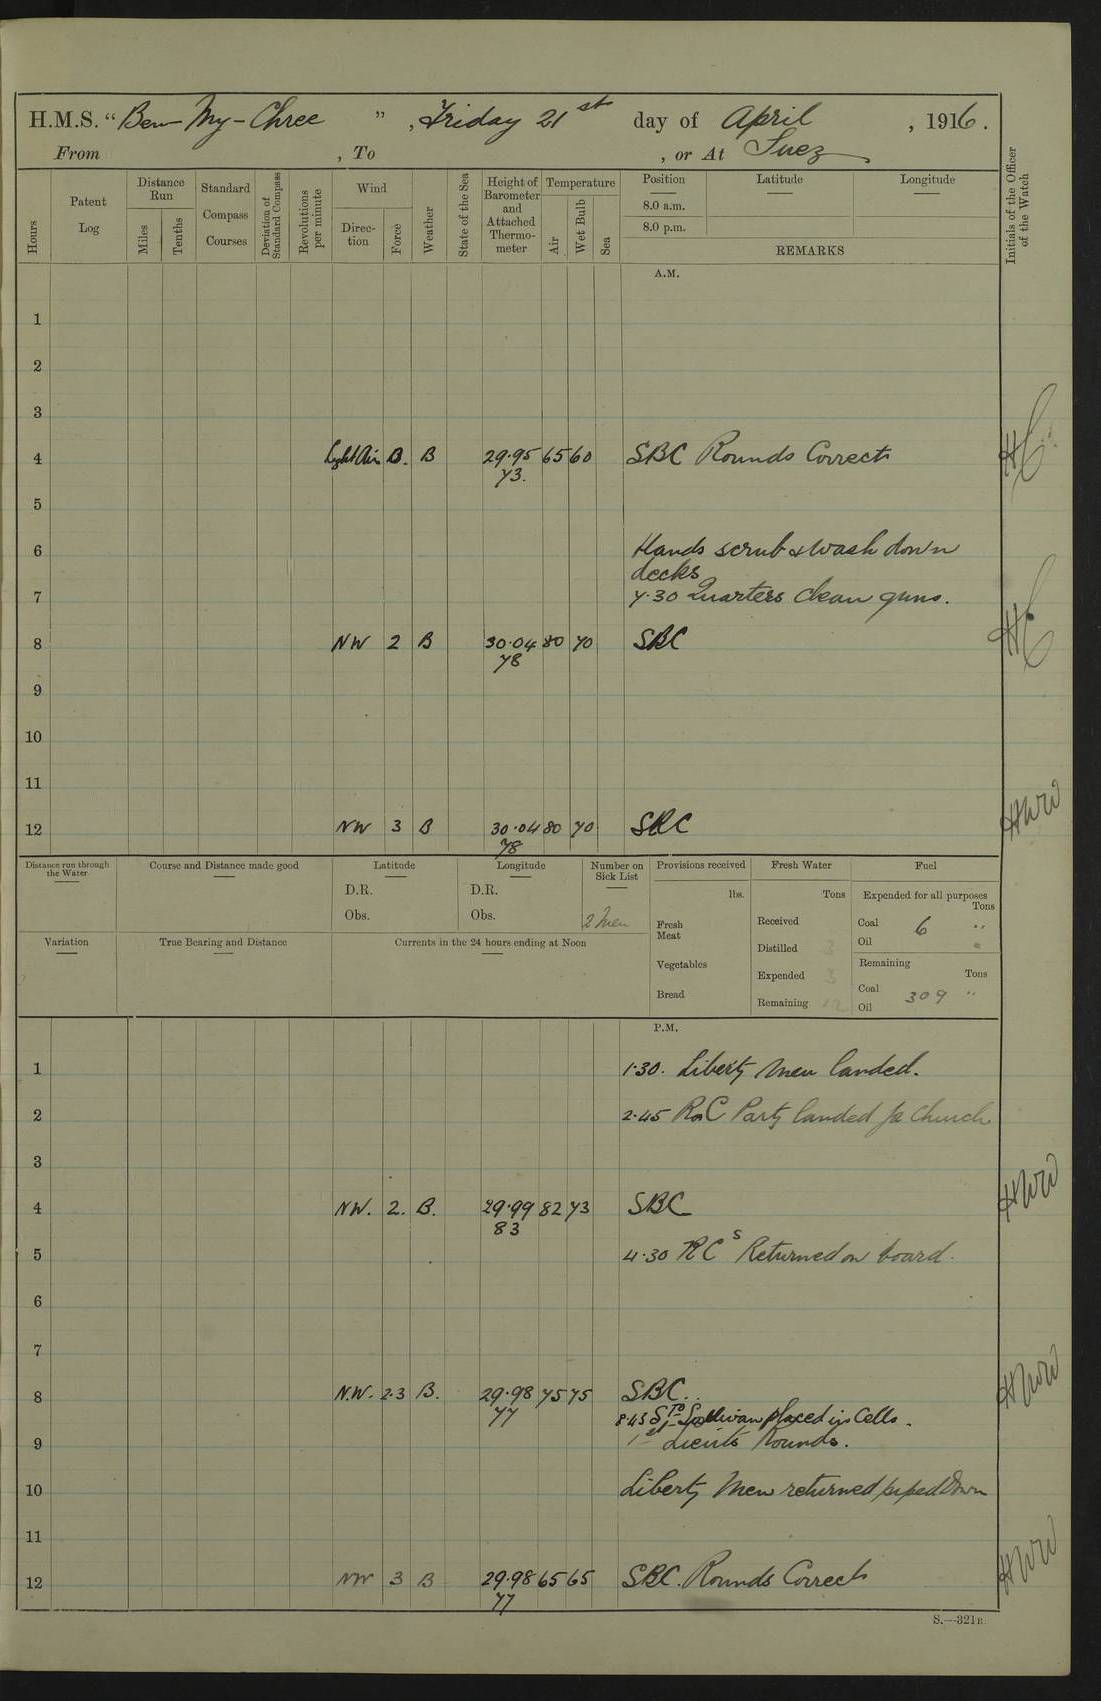 H.M.S. "Ben-My-Chree", Friday 21st day of April, 1916.
From , To , or At Suez
Hours
Patent Log
Distance Run
Miles
Tenths
Standard Compass Courses
Deviation of Standard Compass
Revolutions per minute
Wind
Direction
Force
Weather
State of the Sea
Height of Barometer and Attached Thermometer
Temperature
Air
Wet Bulb
Sea
Position Latitude Longitude
8.0 a.m.
8.0 p.m.
REMARKS
Initials of the Officer of the Watch
A.M.
1
2
3
4 Light Air B 29.95 65 60 SBC Rounds Correct
73.
5
6 Hands scrub & wash down
decks
7 7.30 Quarters clean guns.
8 NW 2 B 30.04 80 70 SBC
78
9
10
11
12 NW 3 B 30.04 80 70 SBC HWW
78
Distance run through the Water
Course and Distance made good
Latitude
D.R.
Obs.
Longitude
D.R.
Obs.
Number on Sick List
2 Men
Provisions received
lbs.
Fresh Meat
Vegetables
Bread
Fresh Water
Tons
Received
Distilled 3
Expended 3
Remaining 12
Fuel
Expended for all purposes
Tons
Coal 6 "
Oil
Remaining
Tons
Coal 309 "
Oil
Variation
True Bearing and Distance
Currents in the 24 hours ending at Noon
P.M.
1 1.30. Liberty Men landed.
2 2.45 R.C Party landed for Church
3
4 NW. 2. B. 29.99 82 73 SBC HWW
83
5 4.30 RCs Returned on board.
6
7
8 N.W. 2.3 B. 29.98 75 75 SBC. HWW
77 8.45 Sto Sullivan placed in Cells.
9 1st Lieuts Rounds.
10 Liberty Men returned piped Down
11
12 NW 3 B 29.98 65 65 SBC. Rounds Correct HWW
77
S.—321B.